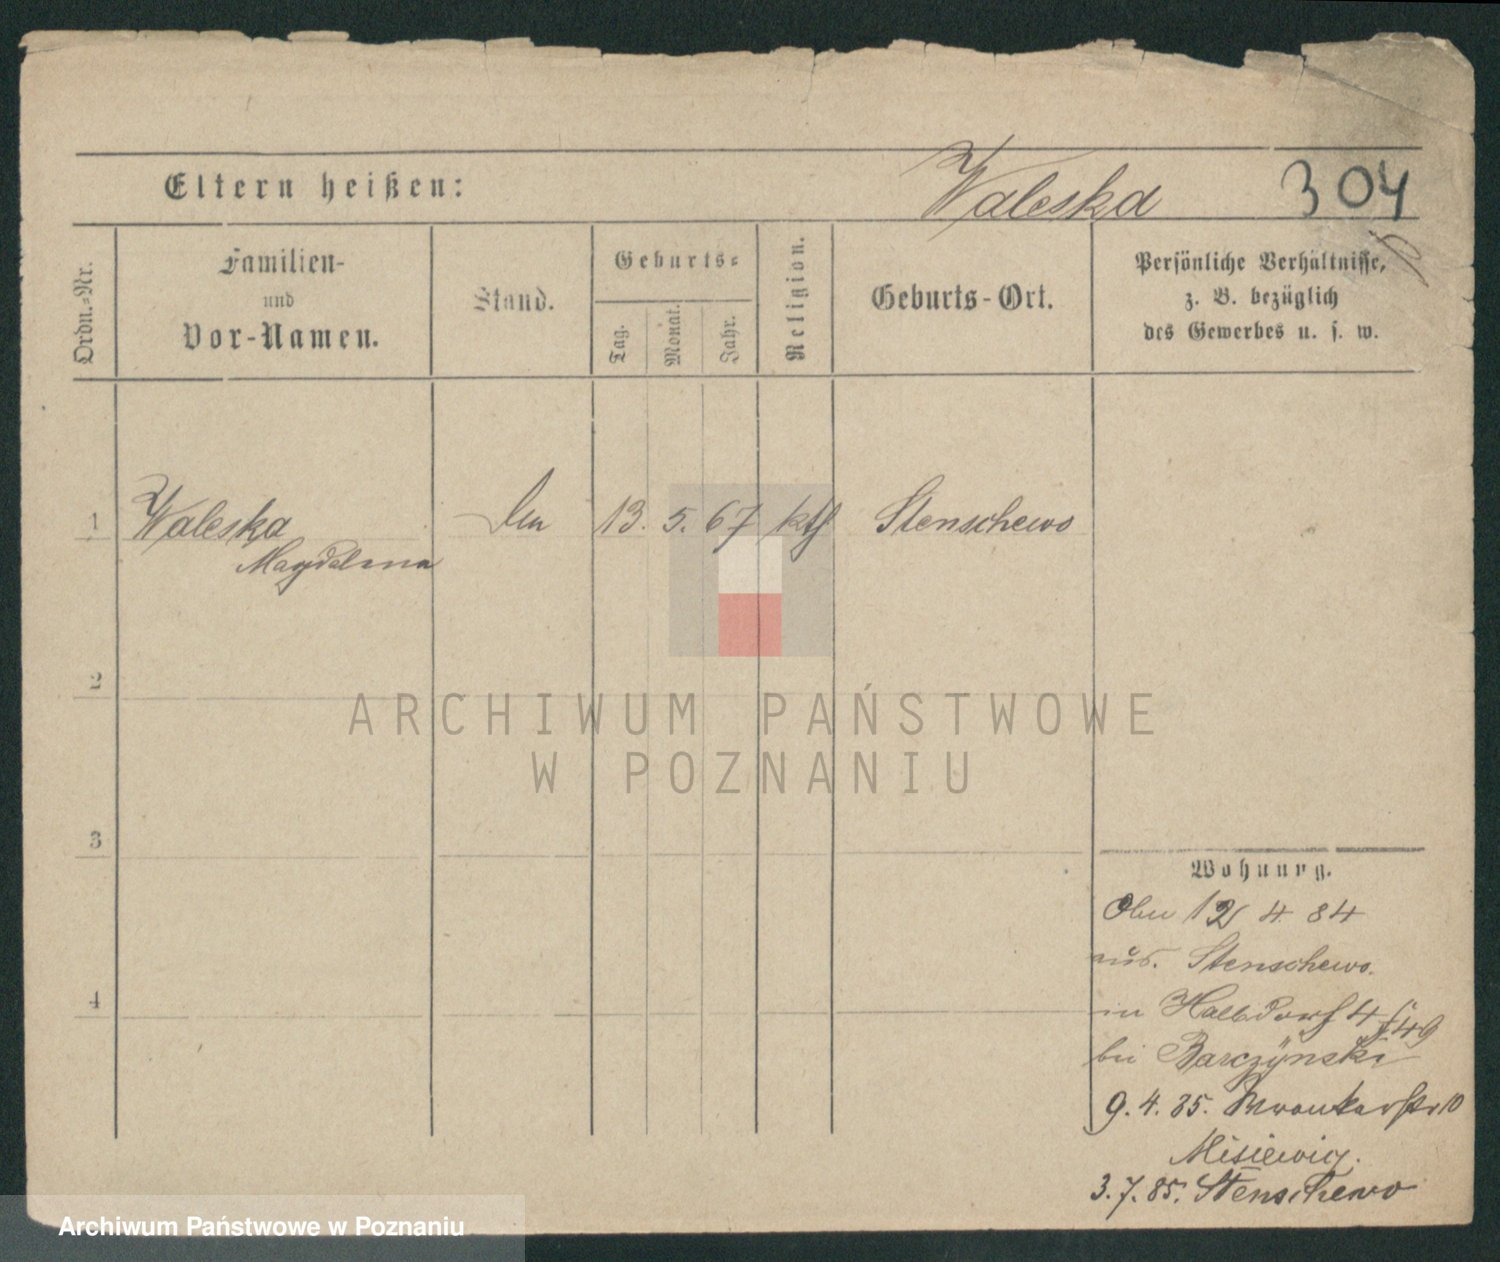 Eltern heißen:
Waleska 304
Ordn.=Nr.
Familien-
und
Vor-Namen.
Stand.
Geburts=
Tag.
Monat.
Jahr.
Religion.
Geburts-Ort.
Persönliche Verhältnisse,
z. B. bezüglich
des Gewerbes u. s. w.
1 Waleska 13. 5. 67 kth Stenschewo
Magdalena
2
3
4
Wohnung.
12 4. 84
aus. Stenschewo.
in Halbdorf 4
bei Barczynski
9. 4. 85. 10
3. 7. 85. Stenschewo
ARCHIWUM PAŃSTWOWE
W POZNANIU
Archiwum Państwowe w Poznaniu